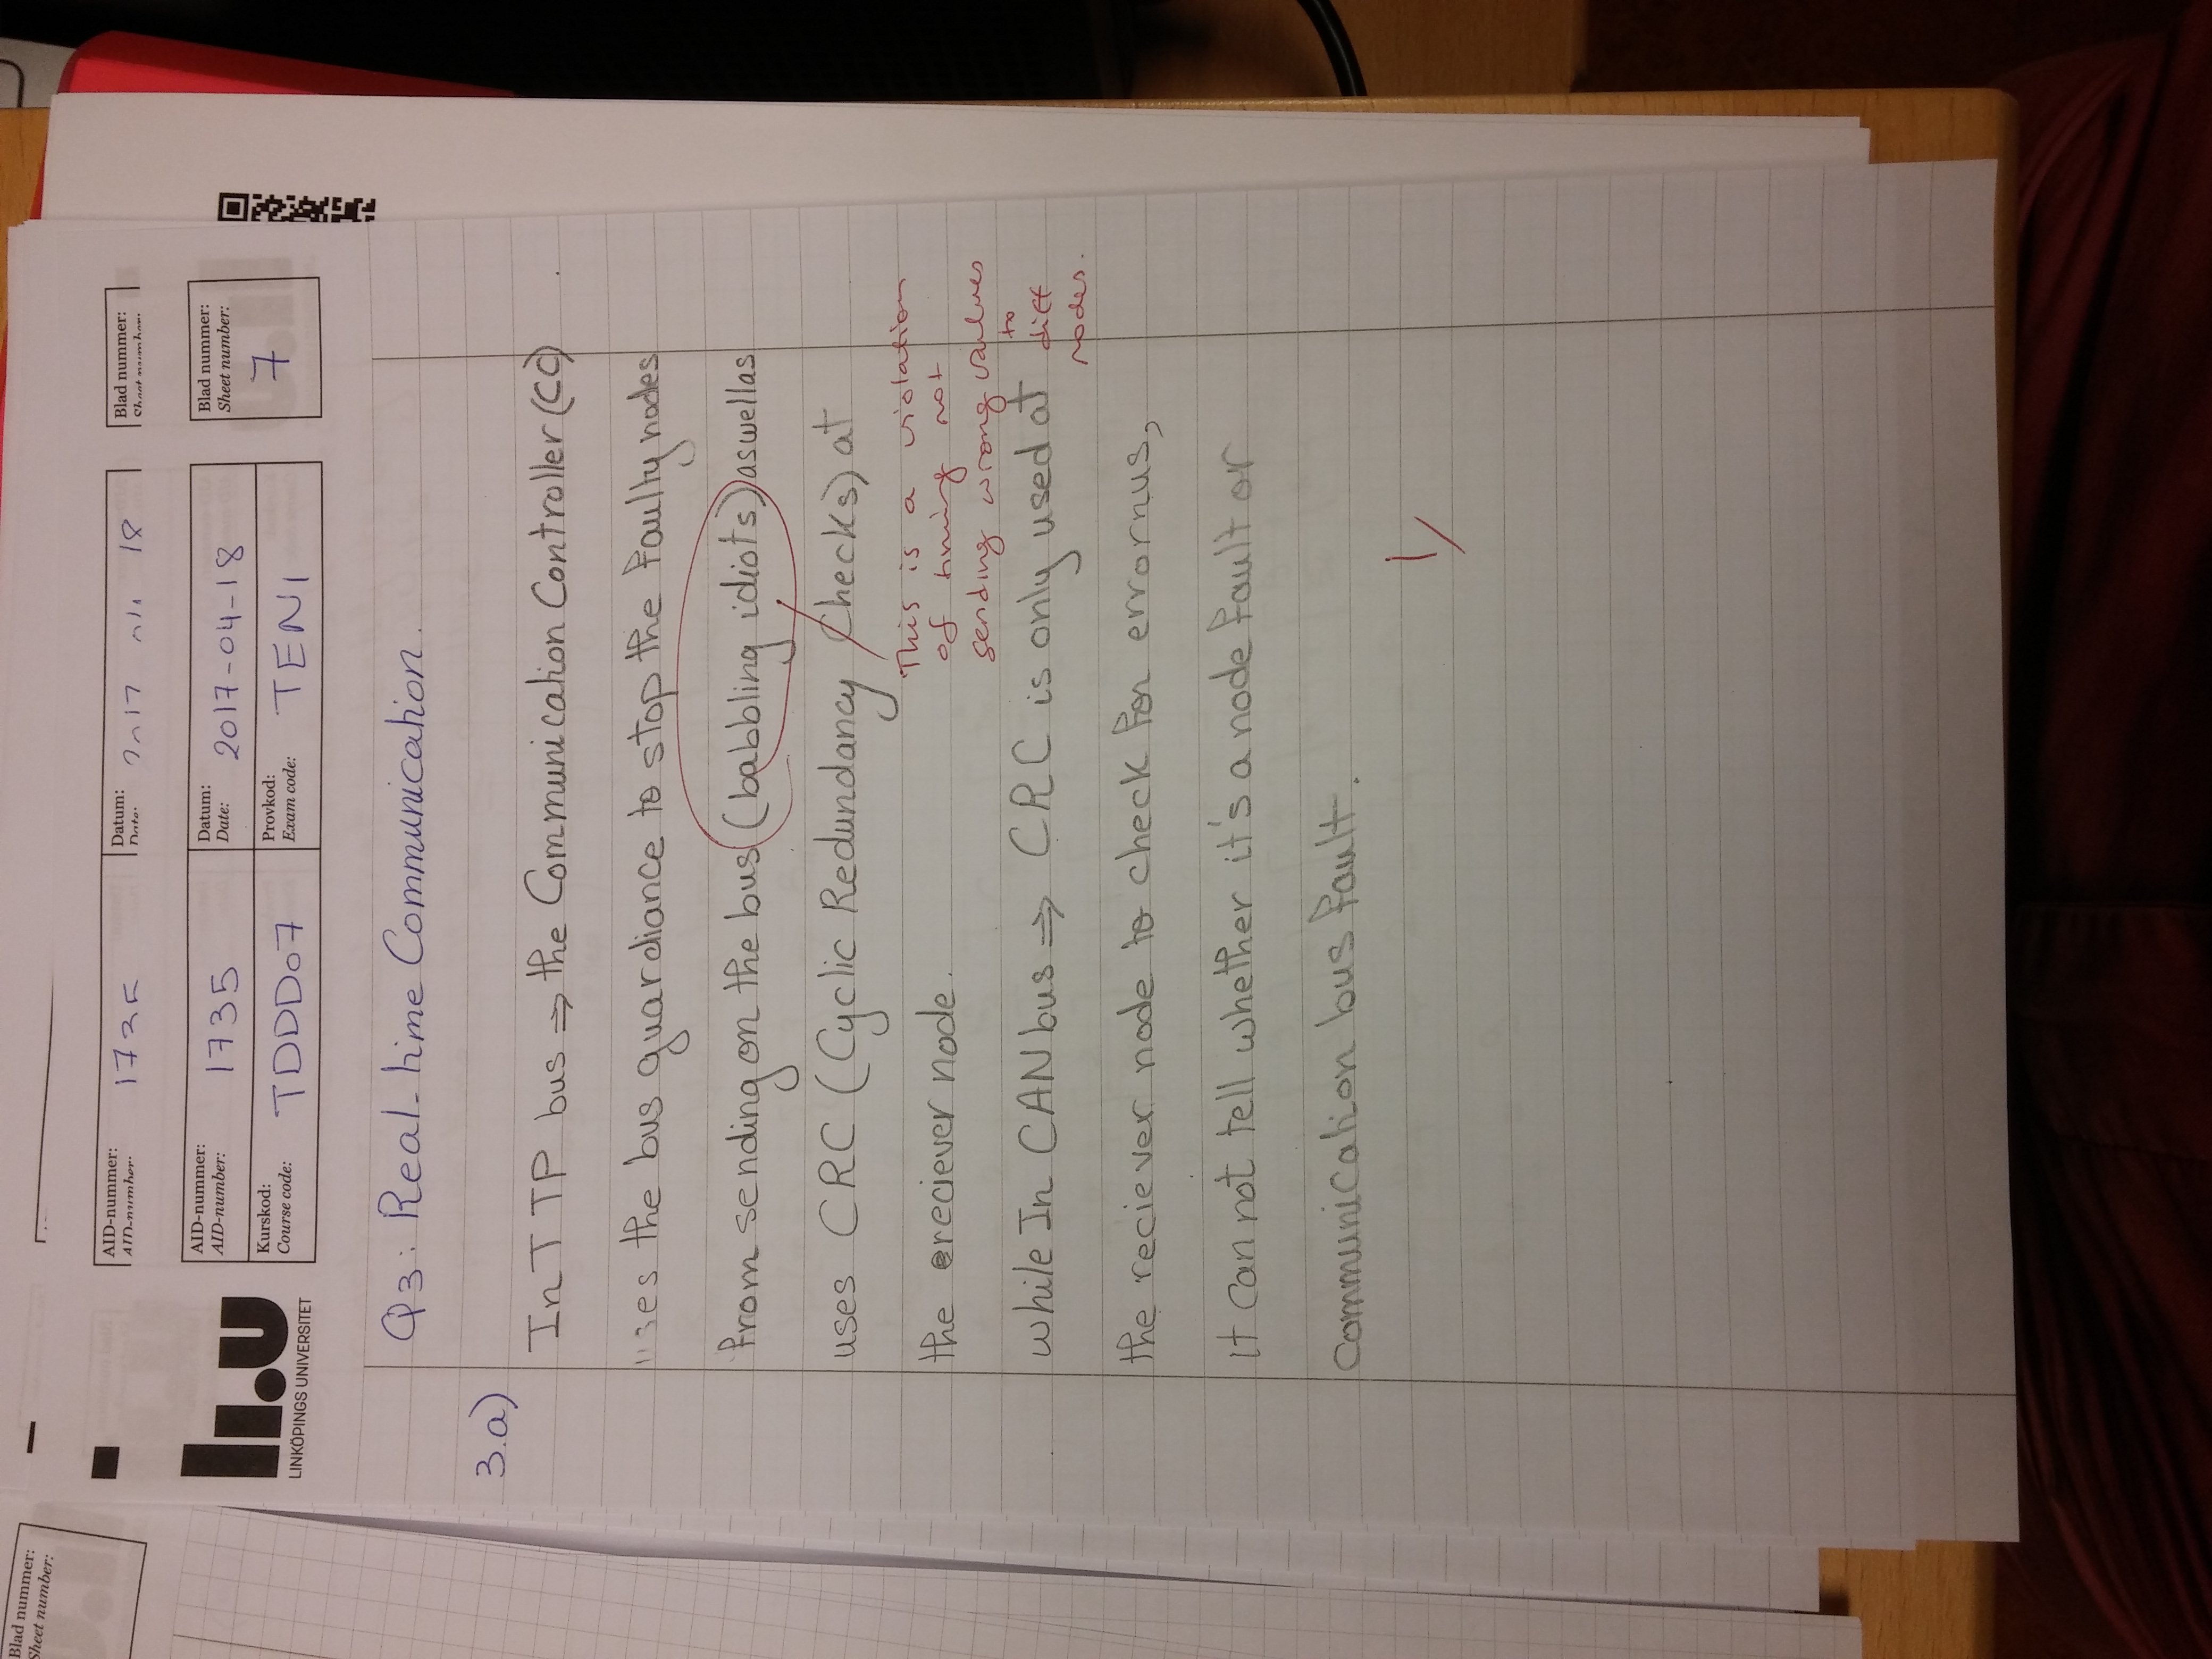 Blad nummer:
Sheet number:
AID-nummer:
Datum:
Blad nummer:
AID-nummer:
AID-number:
1735
Datum:
Date:
2017-04-18
Blad nummer:
Sheet number:
7
Kurskod:
Course code:
TDDD07
Provkod:
Exam code:
TEN1
li.u
LINKÖPINGS UNIVERSITET
Q3: Real-time Communication.
3.a)
In TTP bus ⇒ the Communication Controller (CC)
uses the bus guardiance to stop the Faulty nodes
From sending on the bus (babbling idiots) aswellas
uses CRC (Cyclic Redundancy Checks) at
the reciever node.
This is a violation
of timing not
sending wrong values
to
diff
nodes.
while In CAN bus ⇒ CRC is only used at
the reciever node to check For errornus,
It Can not tell whether it's a node Fault or
Communication bus Fault.
1